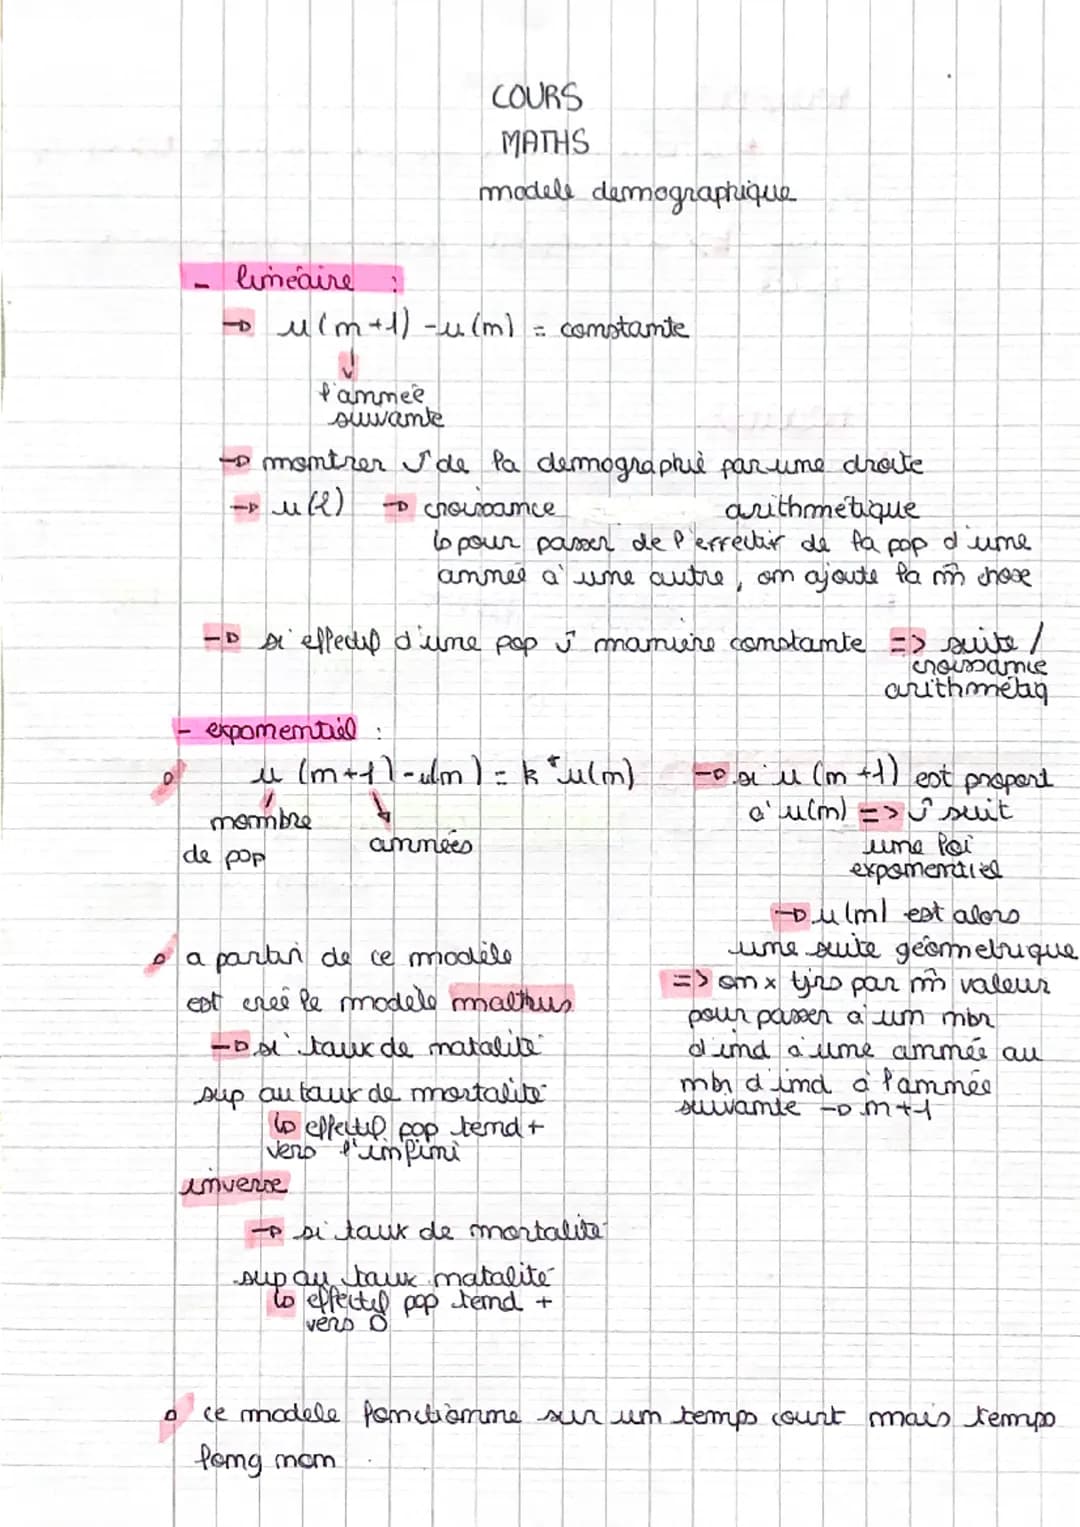 COURS
MATHS
modele demographique
- linéaire :
→ u(n+1) - u(n) = constante
↓
l'année
suivante
→ montrer ↑ de la demographie par une droite
→ u(l) → croissance arithmétique
↳ pour passer de l'effectif de la pop d'une
année à une autre, on ajoute la mm chose
→ si effectif d'une pop ↑ manière constante => suite /
croissance
arithmétiq
- exponentiel :
u (n+1) - u(n) = k * u(n)
nombre
de pop
années
→ si u (n+1) est proport
à u(n) => ↑ suit
une loi
exponentiel
→ u(n) est alors
une suite géométrique
=> on x tjrs par mm valeur
pour passer à un nbr
d'ind à une année au
nbr d'ind à l'année
suivante → n+1
a partir de ce modèle
est creé le modele malthus
→ si taux de natalité
sup au taux de mortalité
↳ effectif pop tend +
vers l'infini
inverse
→ si taux de mortalité
sup au taux natalité
↳ effectif pop tend +
vers 0
ce modele fonctionne sur un temps court mais temps
long non